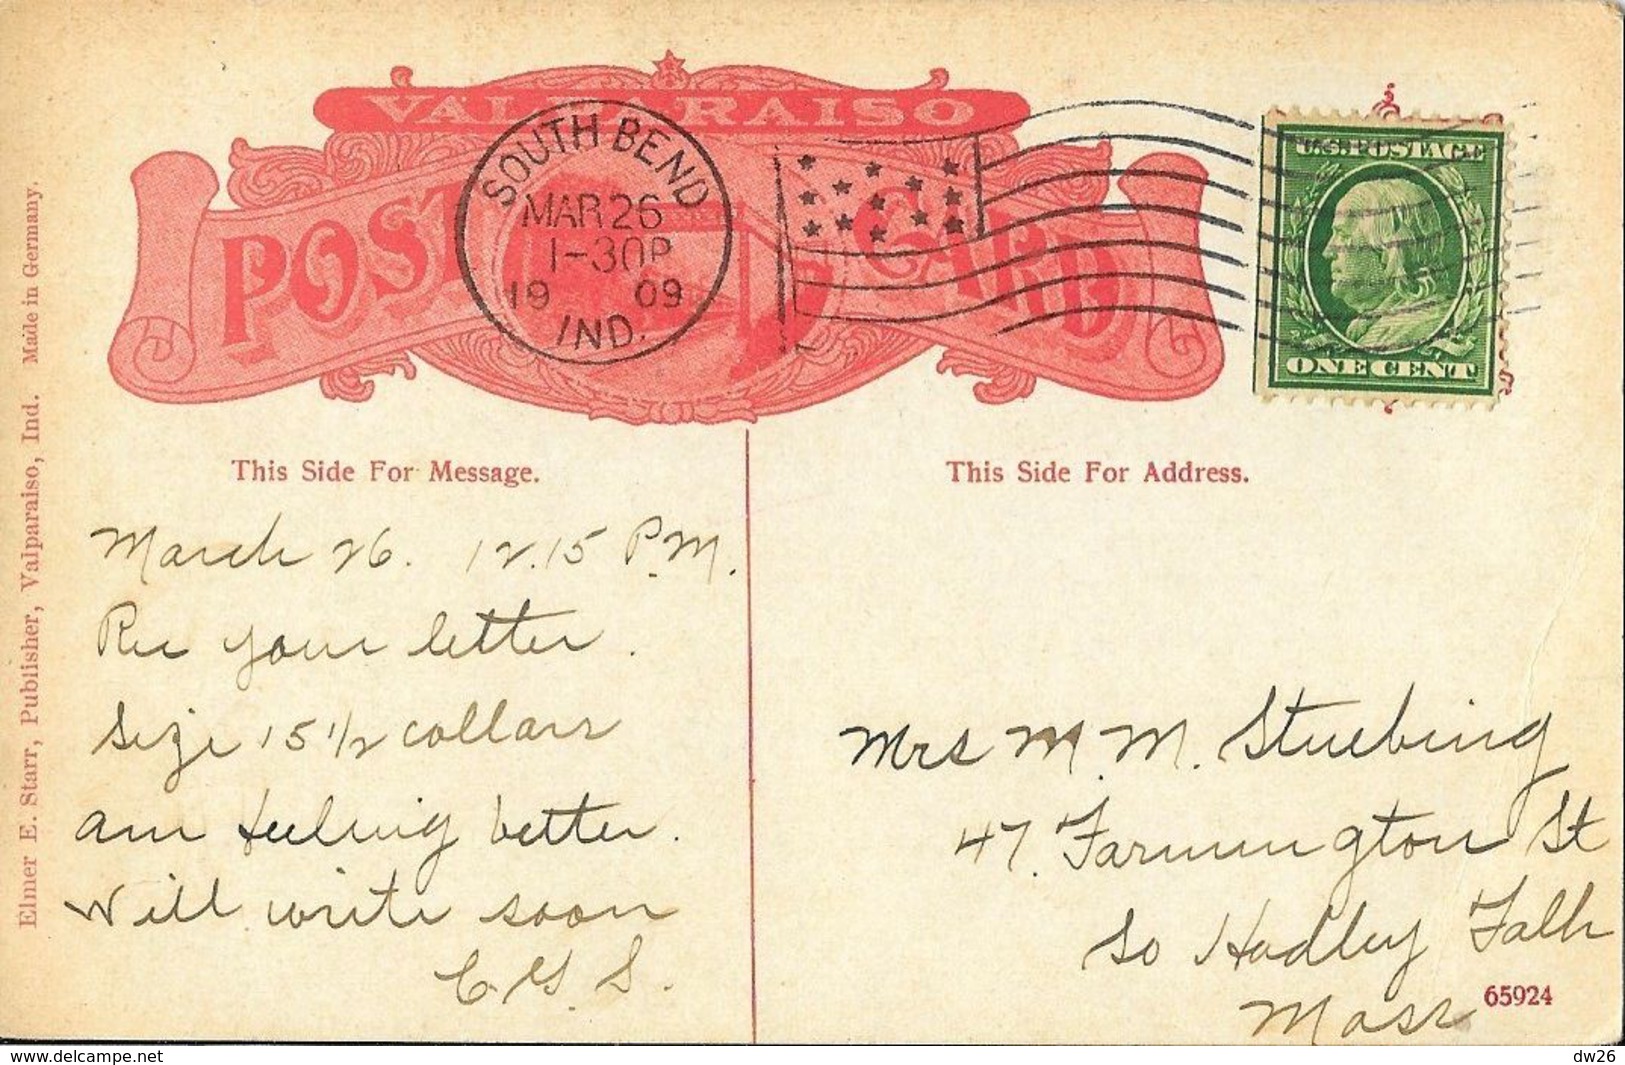 VALPARAISO
POST CARD
SOUTH BEND
MAR 26
1-30P
19 09
IND.
U.S. POSTAGE
ONE CENT
Elmer E. Starr, Publisher, Valparaiso, Ind. Made in Germany.
This Side For Message.
March 26. 12.15 P.M.
Rec your letter.
Size 15 1/2 collars
am feeling better.
Will write soon
S.
This Side For Address.
Mrs M. M. Stuebing
47. Farmington St
So Hadley Falls
Mass
65924
delcampe.net
dw26